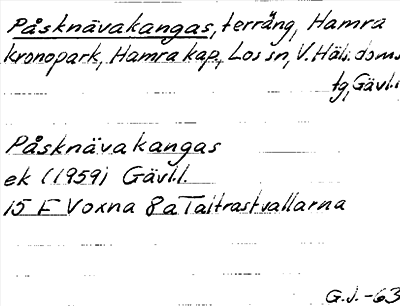 Påsknävakangas, terräng, Hamra
kronopark, Hamra kap, Los sn, V. Häls. doms.
tg, Gävl.l
Påsknävakangas
ek (1959) Gävl.l.
15 F Voxna 8a Taitrastvallarna
G.J. -63